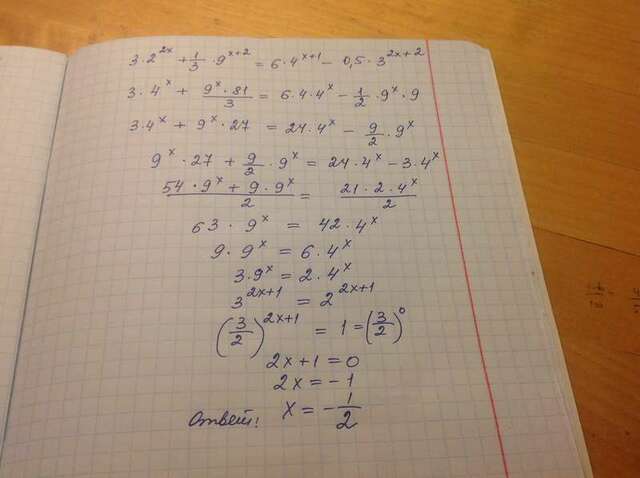 3·2^{2x} + \frac{1}{3}·9^{x+2} = 6·4^{x+1} - 0,5·3^{2x+2}
3·4^x + \frac{9^x·81}{3} = 6·4·4^x - \frac{1}{2}·9^x·9
3·4^x + 9^x·27 = 24·4^x - \frac{9}{2}·9^x
9^x·27 + \frac{9}{2}·9^x = 24·4^x - 3·4^x
\frac{54·9^x + 9·9^x}{2} = \frac{21·2·4^x}{2}
63·9^x = 42·4^x
9·9^x = 6·4^x
3·9^x = 2·4^x
3^{2x+1} = 2^{2x+1}
(\frac{3}{2})^{2x+1} = 1 = (\frac{3}{2})^0
2x+1=0
2x=-1
Ответ: x = -\frac{1}{2}